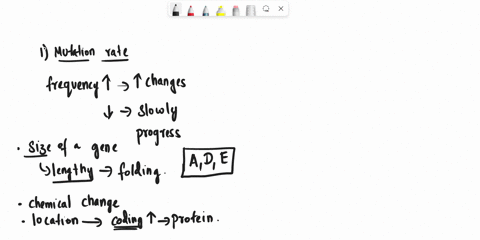 1) Mutation rate
frequency ↑ → ↑ changes
↓ → Slowly
progress
• Size of a gene
↳ lengthy → folding.
A, D, E
• chemical change
• location → coding ↑ → protein.